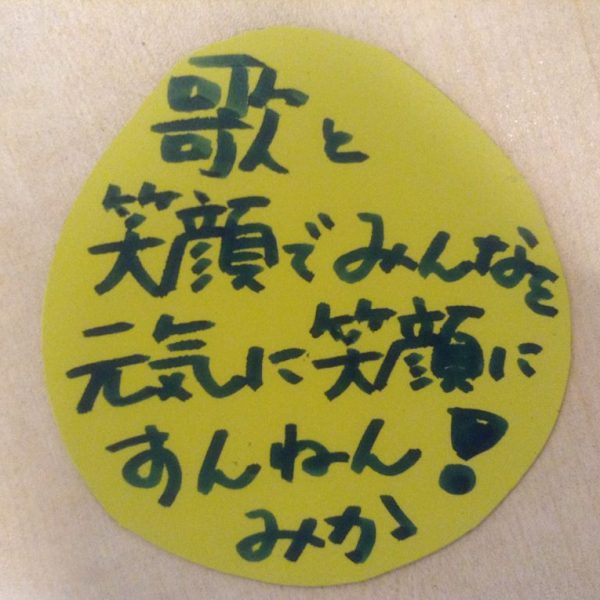 歌と
笑顔でみんなを
元気に笑顔に
すんねん!
みか